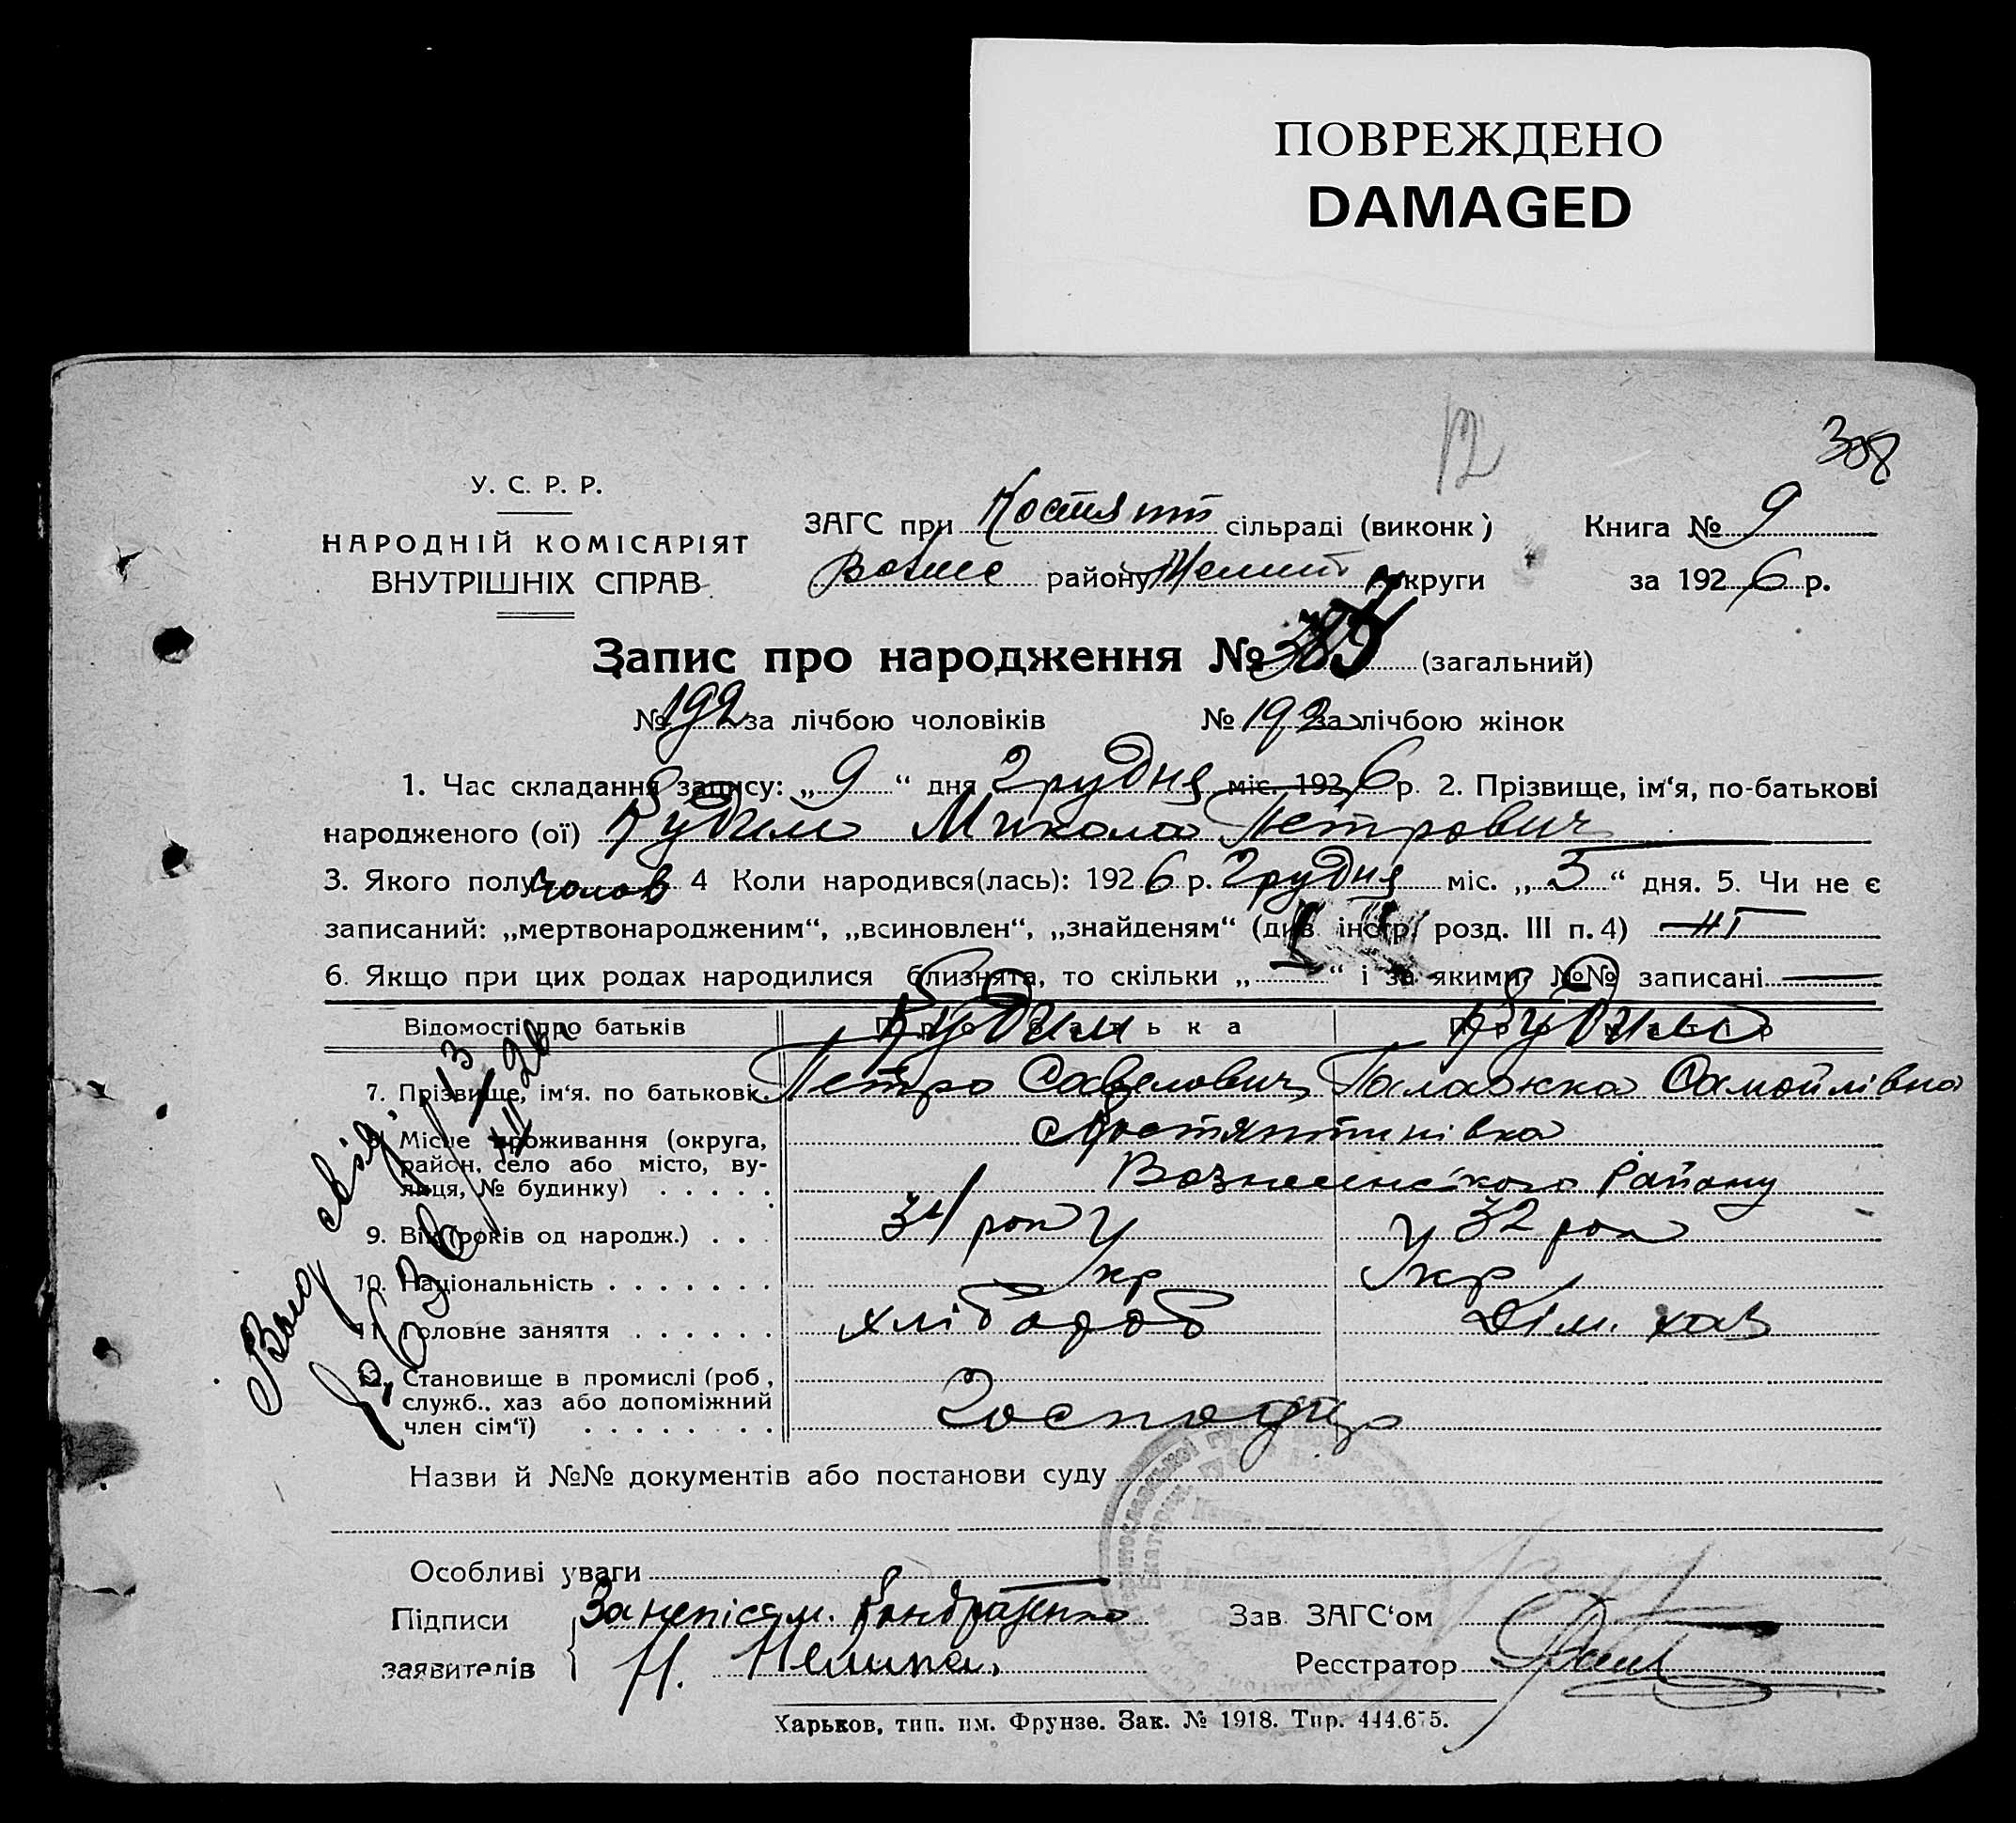 ПОВРЕЖДЕНО
DAMAGED
12
308
У. С. Р. Р.
НАРОДНІЙ КОМІСАРІЯТ
ВНУТРІШНІХ СПРАВ
ЗАГС при Костянт сільраді (виконк)
Вознес району Мелит округи
Книга № 9
за 1926 р.
Запис про народження № (загальний)
№ 192 за лічбою чоловіків № 192 за лічбою жінок
1. Час складання запису: „9“ дня Грудня міс. 1926 р. 2. Прізвище, ім‘я, по-батькові
народженого (ої) Кудим Микола Петрович
3. Якого полу чолов 4 Коли народився(лась): 1926 р. Грудня міс. „5“ дня. 5. Чи не є
записаний: „мертвонародженим“, „всиновлен“, „знайденям“ (див інстр. розд. III п. 4) ні
6. Якщо при цих родах народилися близнята, то скільки „—“ і за якими №№ записані —
Відомості про батьків Про батька Про матір
Кудим Кудим
7. Прізвище, ім‘я. по батькові. Петро Савелович Палажка Самойлівна
8. Місце проживання (округа, район, село або місто, ву-лиця, № будинку) с Костянтинівка
Вознесенського Району
9. Вік (років од народж.) 34 рок у 32 рок
10. Національність Укр Укр
11. Головне заняття хлібороб Дом. хаз
12. Становище в промислі (роб, служб.. хаз або допоміжний член сім‘ї) Господар
Назви й №№ документів або постанови суду
Особливі уваги
Підписи
заявителів
За неписьм. Кондратенко
Н. Нелипа.
Зав. ЗАГС‘ом
Реєстратор
Харьков, тип. им. Фрунзе. Зак. № 1918. Тир. 444.675.